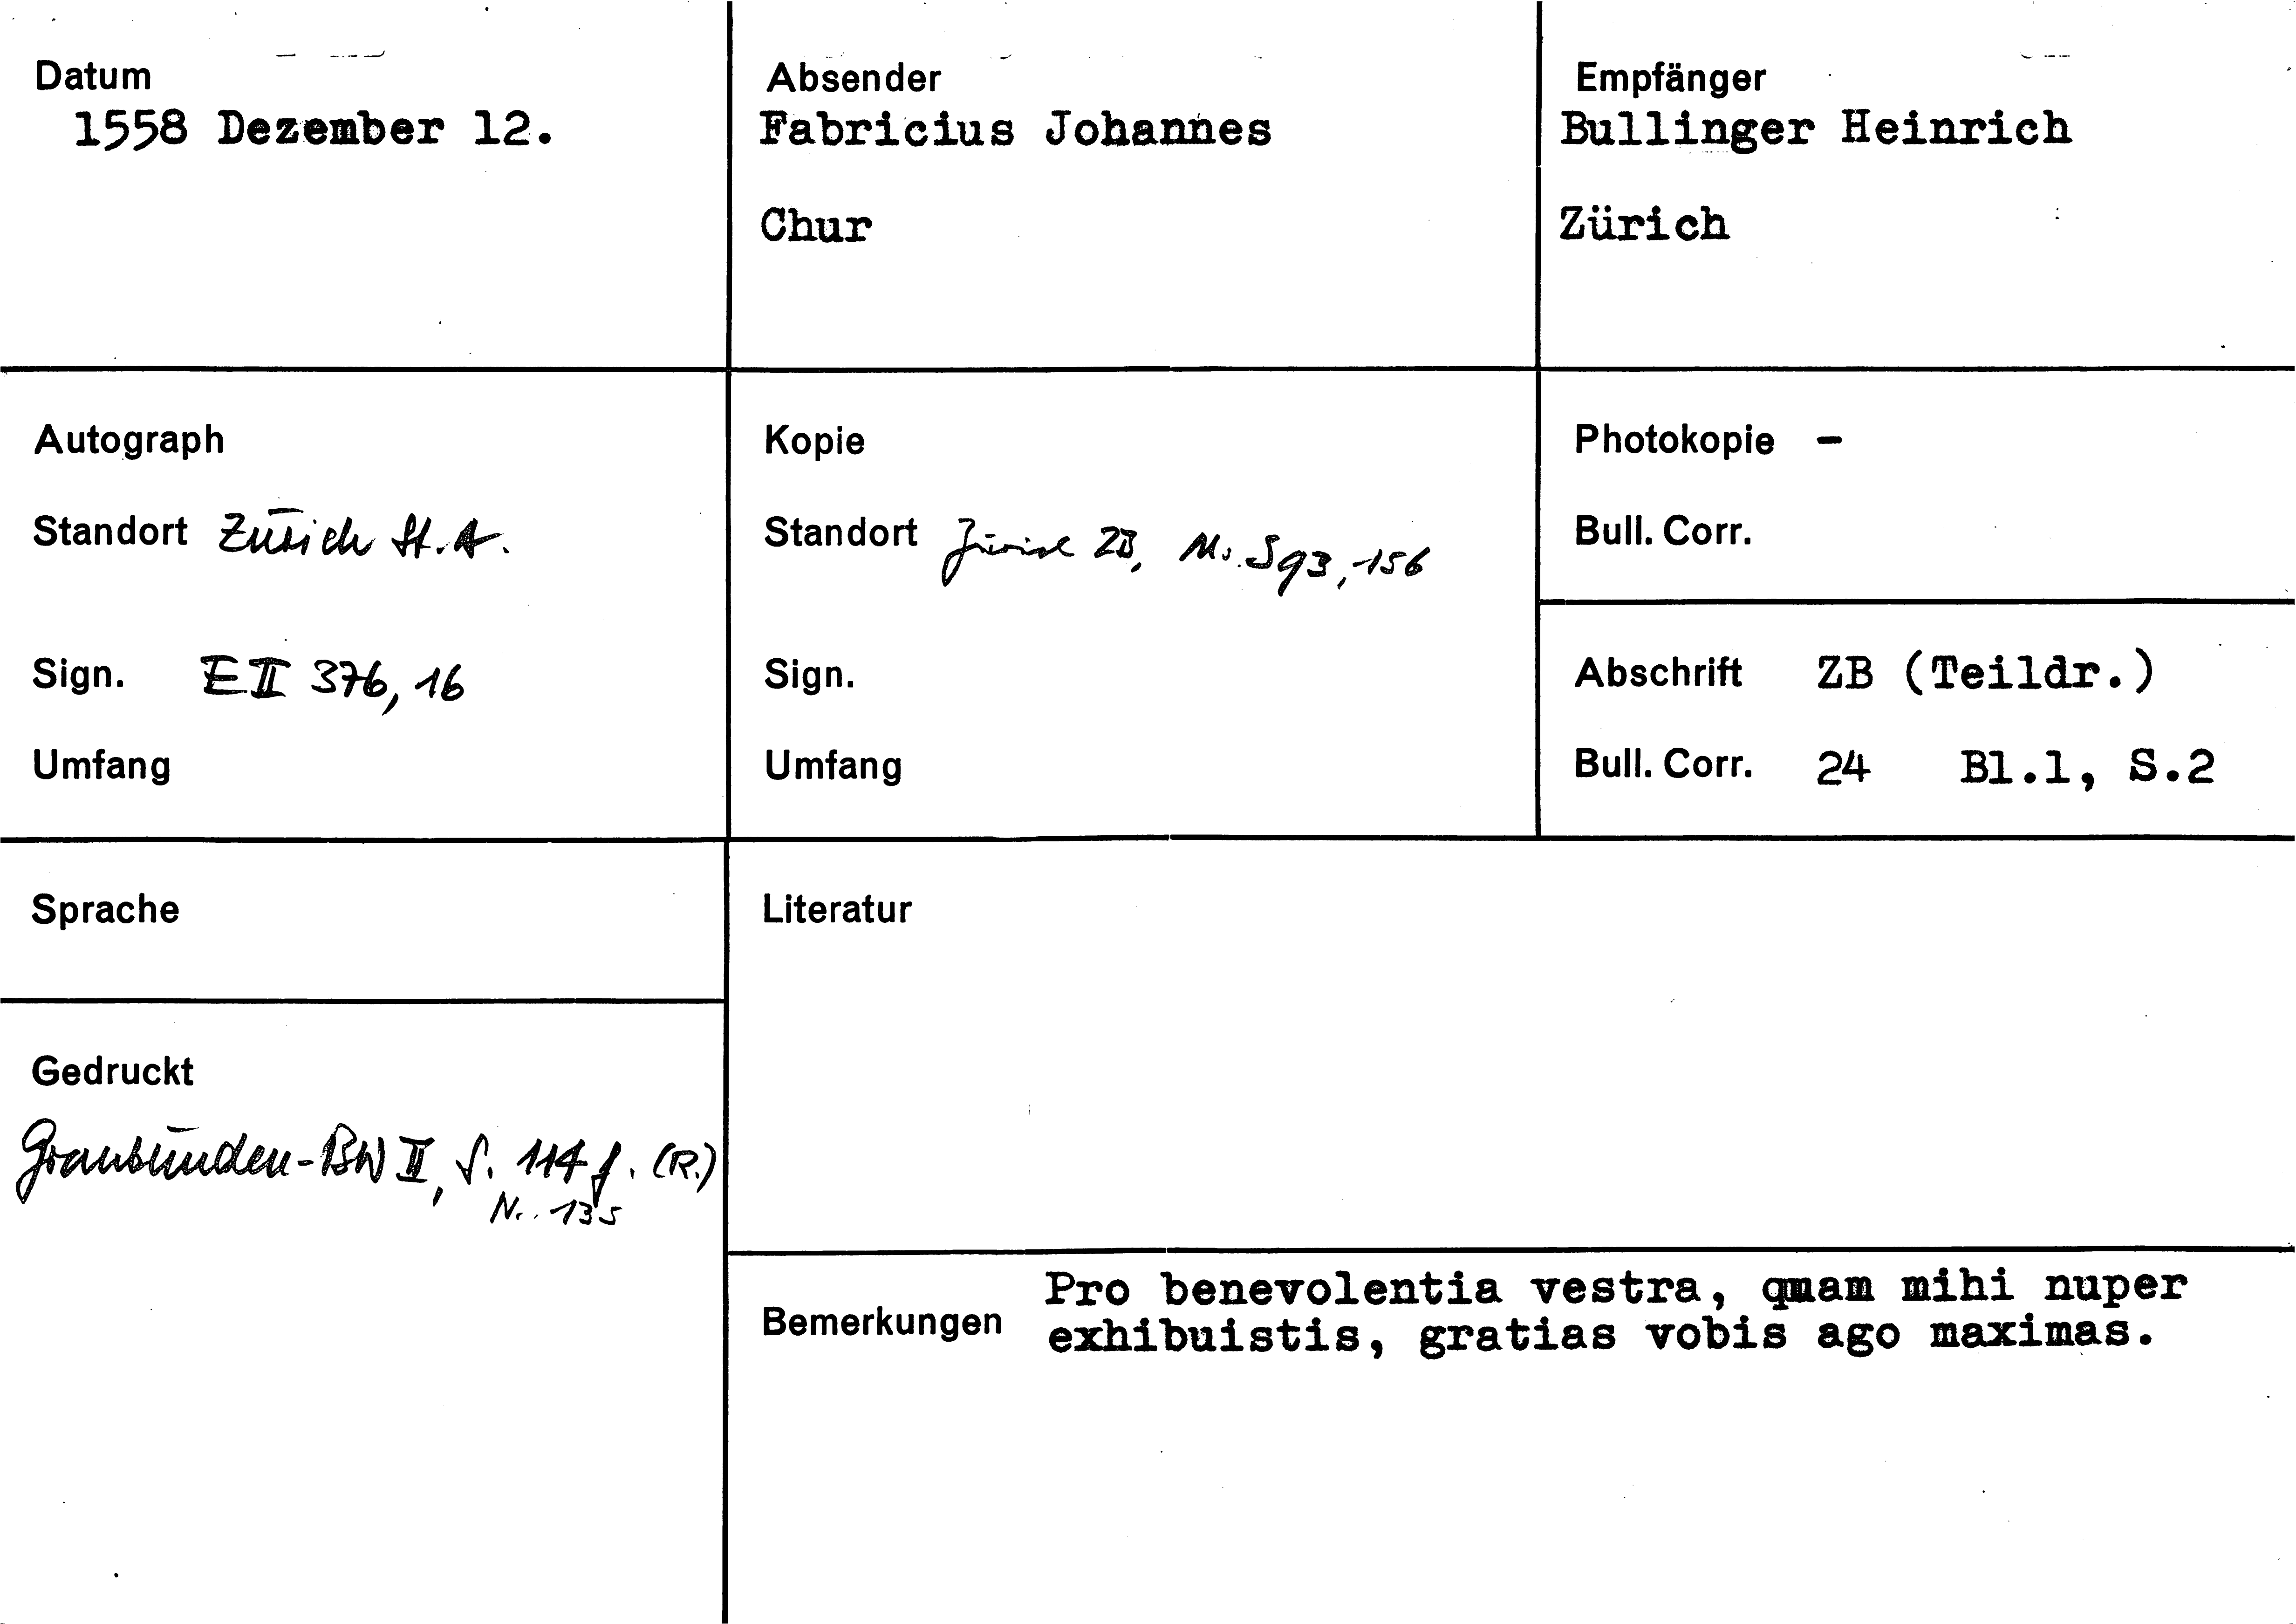 Datum
1558 Dezember 12.
Absender
Fabricius Johannes
Chur
Empfänger
Bullinger Heinrich
Zürich
Autograph
Standort Zürich St.A.
Sign. E II 376, 16
Umfang
Kopie
Standort Zürich ZB, Ms. S 93, 156
Sign.
Umfang
Photokopie -
Bull. Corr.
Abschrift ZB (Teildr.)
Bull. Corr. 24 Bl.1, S.2
Sprache
Gedruckt
Graubünden-BW II, S. 114 f. (R.)
Nr. 135
Literatur
Bemerkungen
Pro benevolentia vestra, quam mihi nuper
exhibuistis, gratias vobis ago maximas.